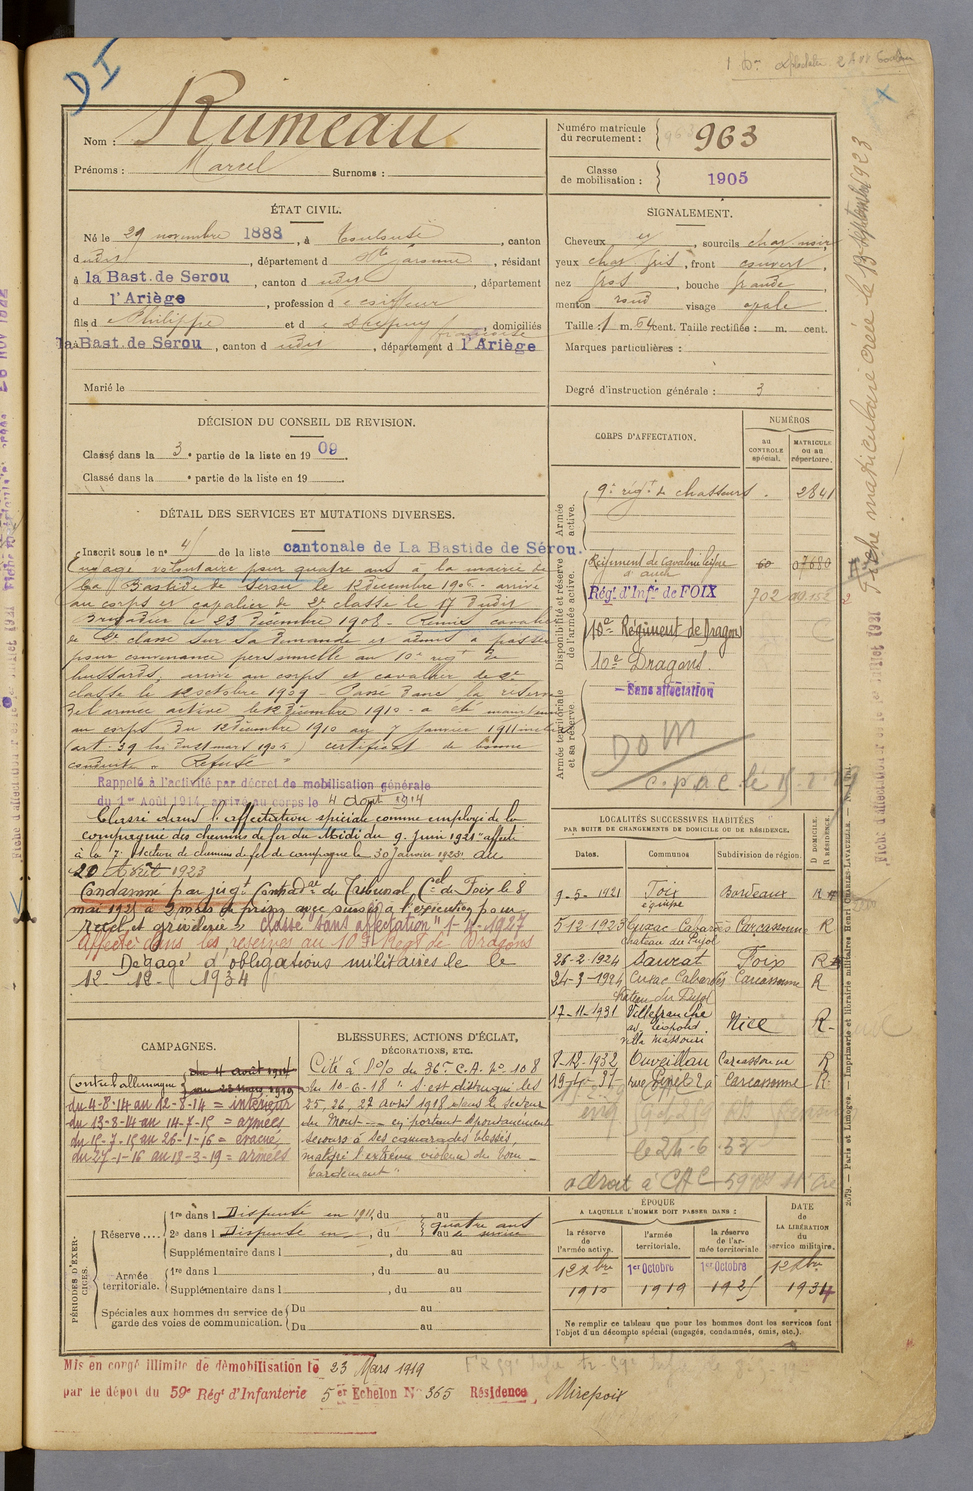 DI
Nom : Rumeau
Prénoms : Marcel Surnoms :
Numéro matricule du recrutement : 963
Classe de mobilisation : 1905
ÉTAT CIVIL.
Né le 29 novembre 1888, à Toulouse, canton
dudit, département d Hte Garonne, résidant
à la Bast. de Serou, canton dudit, département
d l'Ariège, profession de coiffeur
fils de Philippe et de françoise, domiciliés
à la Bast. de Serou, canton dudit, département de l'Ariège
Marié le
SIGNALEMENT.
Cheveux , sourcils chat. noir
yeux chat. gris, front couvert,
nez gros, bouche grande,
menton rond visage ovale.
Taille : 1 m. 64 cent. Taille rectifiée : m. cent.
Marques particulières :
Degré d'instruction générale : 3
DÉCISION DU CONSEIL DE REVISION.
Classé dans la 3e partie de la liste en 1909.
Classé dans la e partie de la liste en 19
DÉTAIL DES SERVICES ET MUTATIONS DIVERSES.
Inscrit sous le n° 4 de la liste cantonale de La Bastide de Sérou.
Engagé volontaire pour quatre ans à la mairie de
La Bastide de Serou le 12 décembre 1906 - arrivé
au corps et cavalier de 2e classe le 17 dudit
Brigadier le 23 décembre 1908 - Remis cavalier
de 2e classe sur sa demande et admis à passer
pour convenance personnelle au 10e régt de
hussards, arrivé au corps et cavalier de 2e
classe le 12 octobre 1909 - Passé dans la réserve
de l'armée active le 12 décembre 1910 - a été maintenu
au corps du 12 décembre 1910 au 7 janvier 1911 inclus
(art. 39 loi du 21 mars 1905) certificat de bonne
conduite " Refusé "
Rappelé à l'activité par décret de mobilisation générale
du 1er Août 1914, arrivé au corps le 4 août 1914
Classé dans l'affectation spéciale comme employé de la
compagnie des chemins de fer du Midi du 9 juin 1921 - affecté
à la 7e section de chemins de fer de campagne le 30 janvier 1923. au
20 Août 1923
Condamné par jugt Contradre du Tribunal Cel de Foix le 8
mai 1925 à 2 mois de prison avec sursis à l'exécution pour
recel et grivèlerie, classé sans affectation" 1-4-1927
Affecté dans les réserves au 10e Régt de Dragons
Dégagé d'obligations militaires le
12. 12. 1934
CORPS D'AFFECTATION.
NUMÉROS
au CONTROLE spécial.
MATRICULE ou au répertoire.
Armée active.
9e régt de chasseurs . 2841
Disponibilité et réserve de l'armée active.
Régiment de cavalerie légère d'auch 60 07680
Régt d'Infie de FOIX 702
10e Régiment de Dragon
10e Dragons.
Armée territoriale et sa réserve.
Sans affectation
DOM
LOCALITÉS SUCCESSIVES HABITÉES
PAR SUITE DE CHANGEMENTS DE DOMICILE OU DE RÉSIDENCE.
Dates. Communes Subdivision de région. D DOMICILE. R RÉSIDENCE.
9-5-1921 Foix équipe Bordeaux R
5 12 1923 Cuxac Cabardès Carcassonne R
chateau du Pujol
26-2-1924 Saurat Foix R
24-3-1924 Cuxac Cabardès Carcassonne R
chateau du Pujol
17-11-1931 Villefranche Nice R
av. Léopold. villa Massouri
8-12-1932 Ouveillan Carcassonne R
Carcassonne R
le 24-6-33
CAMPAGNES.
Contre l'allemagne du 4 août 1914 au 23 mars 1919
du 4-8-14 au 12-8-14 = intérieur
du 13-8-14 au 14-7-15 = armées
du 15-7-15 au 26-1-16 = évacué
du 27-1-16 au 18-3-19 = armées
BLESSURES, ACTIONS D'ÉCLAT,
DÉCORATIONS, ETC.
Cité à l'o/o du 36e C.A. n° 108
du 10-6-18 " S'est distingué les
25, 26, 27 avril 1918 dans le secteur
du Mont --- en portant spontanément
secours à ses camarades blessés,
malgré l'extrême violence du bom-
bardement"
PÉRIODES D'EXERCICES.
Réserve....
1re dans l Dispensé en 1911, du au
2e dans l Dispensé en , du au quatre ans de service
Supplémentaire dans l , du au
Armée territoriale.
1re dans l , du au
Supplémentaire dans l , du au
Spéciales aux hommes du service de garde des voies de communication.
Du au
Du au
ÉPOQUE
A LAQUELLE L'HOMME DOIT PASSER DANS :
la réserve de l'armée active.
l'armée territoriale.
la réserve de l'armée territoriale
DATE DE LA LIBÉRATION du service militaire.
12 Xbre 1910
1er Octobre 1919
1er Octobre 1925
12 Xbre 1934
Ne remplir ce tableau que pour les hommes dont les services font
l'objet d'un décompte spécial (engagés, condamnés, omis, etc.).
Mis en congé illimité de démobilisation le 23 Mars 1919
par le dépot du 59e Régt d'Infanterie 5er Echelon N° 365 Résidence, Mirepoix
Fiche matriculaire créée le 13 septembre 1923
2079. — Paris et Limoges. — Imprimerie et librairie militaires Henri CHARLES-LAVAUZELLE.